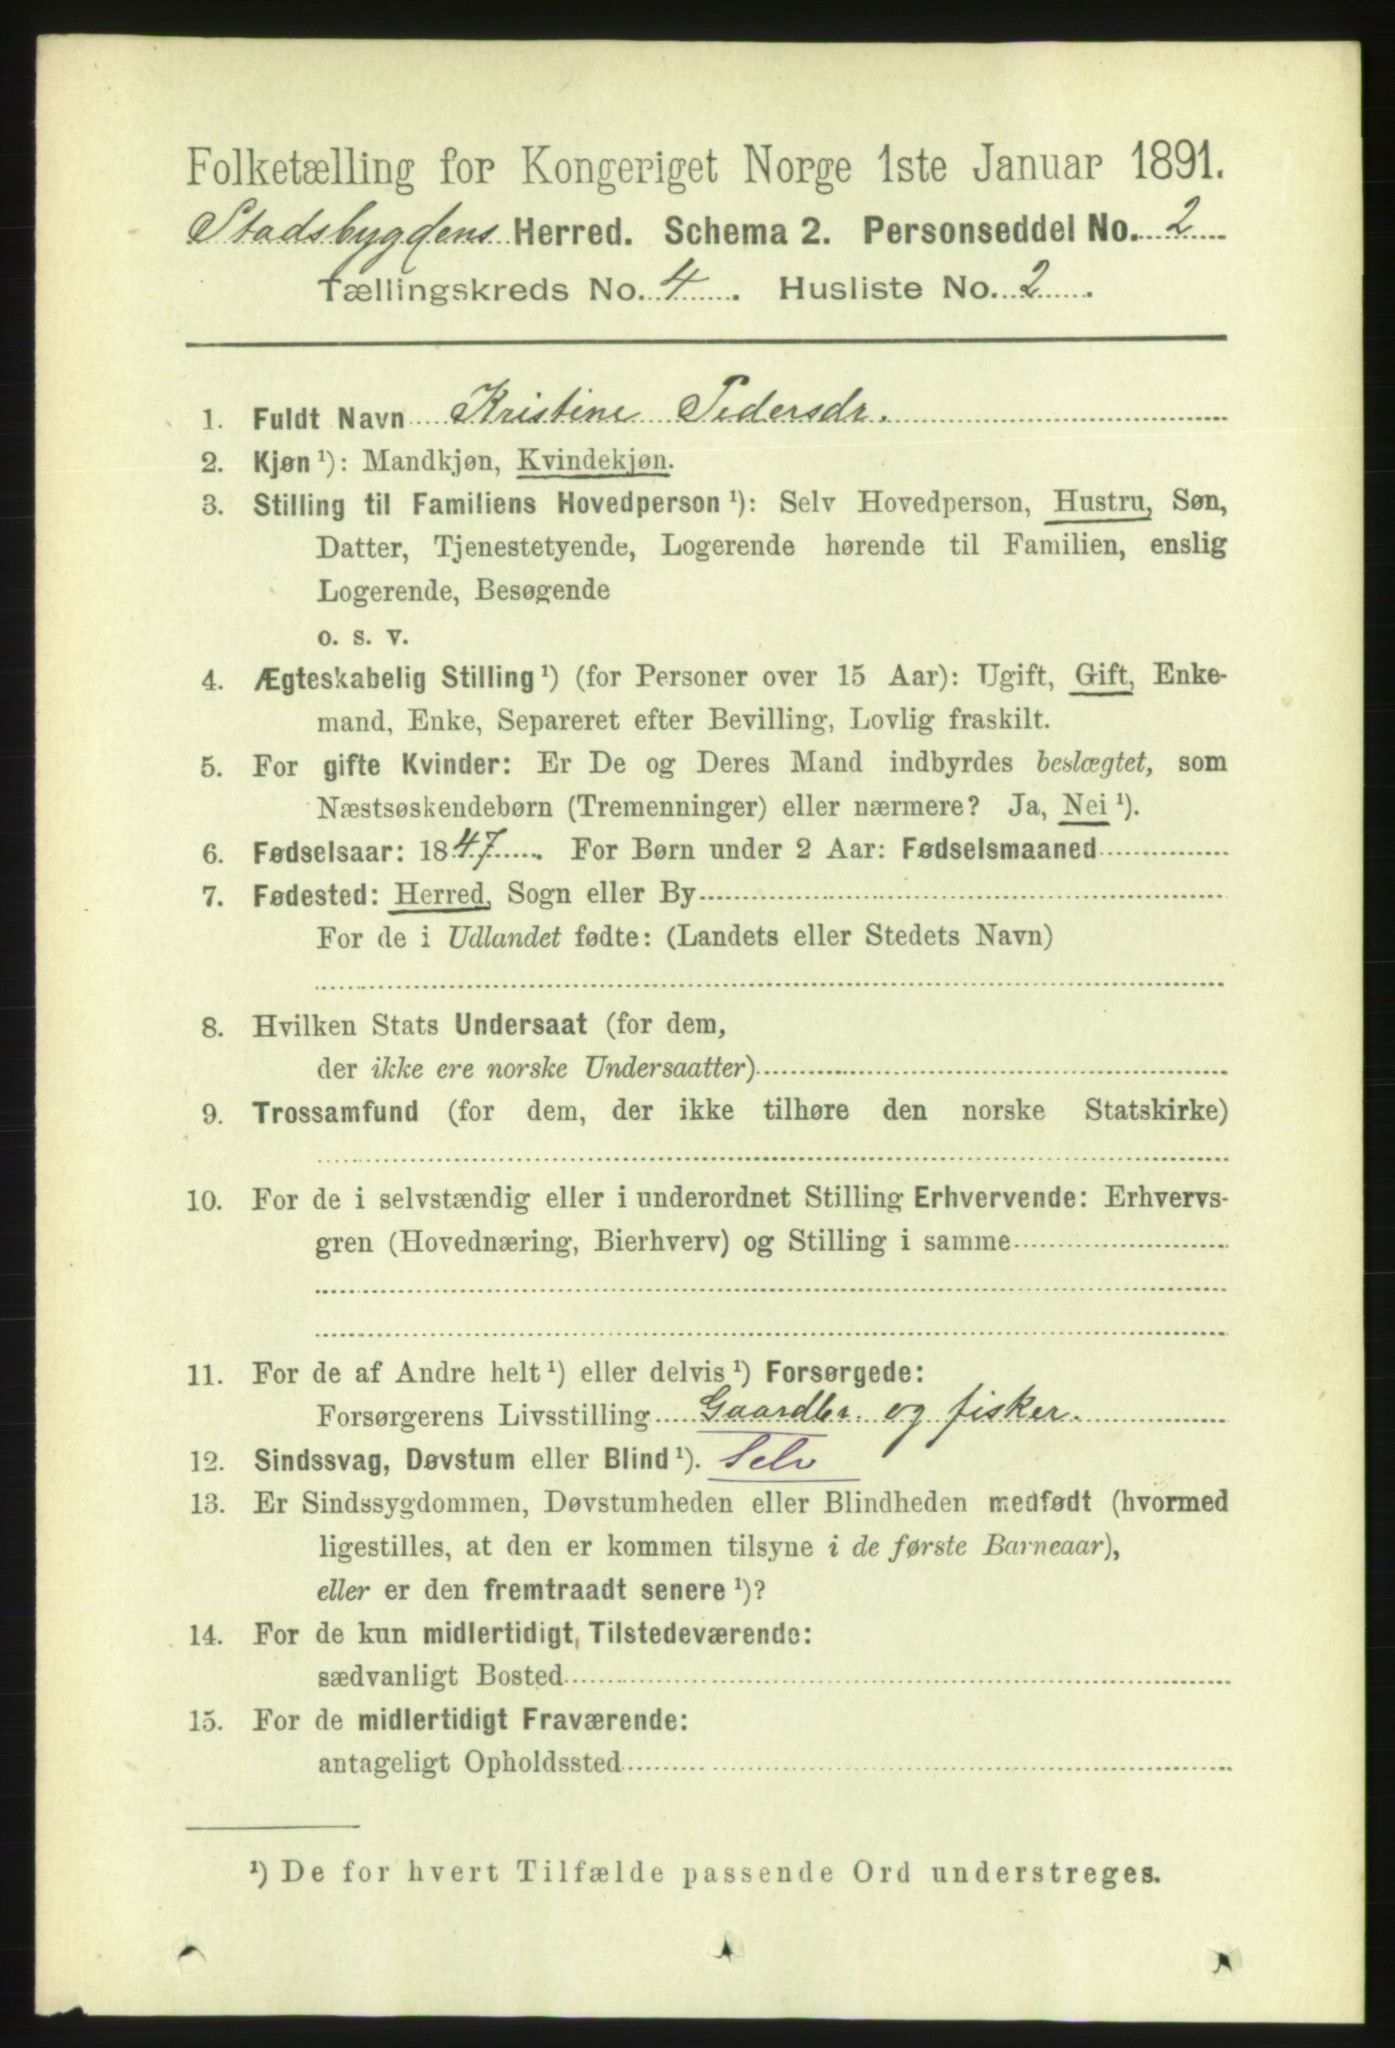 Folketælling for Kongeriget Norge 1ste Januar 1891.
Stadsbygdens Herred. Schema 2. Personseddel No. 2
Tællingskreds No. 4. Husliste No. 2.
1. Fuldt Navn Kristine Pedersdr.
2. Kjøn ¹): Mandkjøn, Kvindekjøn.
3. Stilling til Familiens Hovedperson ¹): Selv Hovedperson, Hustru, Søn,
Datter, Tjenestetyende, Logerende hørende til Familien, enslig
Logerende, Besøgende
o. s. v.
4. Ægteskabelig Stilling ¹) (for Personer over 15 Aar): Ugift, Gift, Enke-
mand, Enke, Separeret efter Bevilling, Lovlig fraskilt.
5. For gifte Kvinder: Er De og Deres Mand indbyrdes beslægtet, som
Næstsøskendebørn (Tremenninger) eller nærmere? Ja, Nei ¹).
6. Fødselsaar: 1847. For Børn under 2 Aar: Fødselsmaaned
7. Fødested: Herred, Sogn eller By
For de i Udlandet fødte: (Landets eller Stedets Navn)
8. Hvilken Stats Undersaat (for dem,
der ikke ere norske Undersaatter)
9. Trossamfund (for dem, der ikke tilhøre den norske Statskirke)
10. For de i selvstændig eller i underordnet Stilling Erhvervende: Erhvervs-
gren (Hovednæring, Bierhverv) og Stilling i samme
11. For de af Andre helt ¹) eller delvis ¹) Forsørgede:
Forsørgerens Livsstilling Gaardbr. og fisker.
12. Sindssvag, Døvstum eller Blind ¹). Selv
13. Er Sindssygdommen, Døvstumheden eller Blindheden medfødt (hvormed
ligestilles, at den er kommen tilsyne i de første Barneaar),
eller er den fremtraadt senere ¹)?
14. For de kun midlertidigt Tilstedeværende:
sædvanligt Bosted
15. For de midlertidigt Fraværende:
antageligt Opholdssted
¹) De for hvert Tilfælde passende Ord understreges.